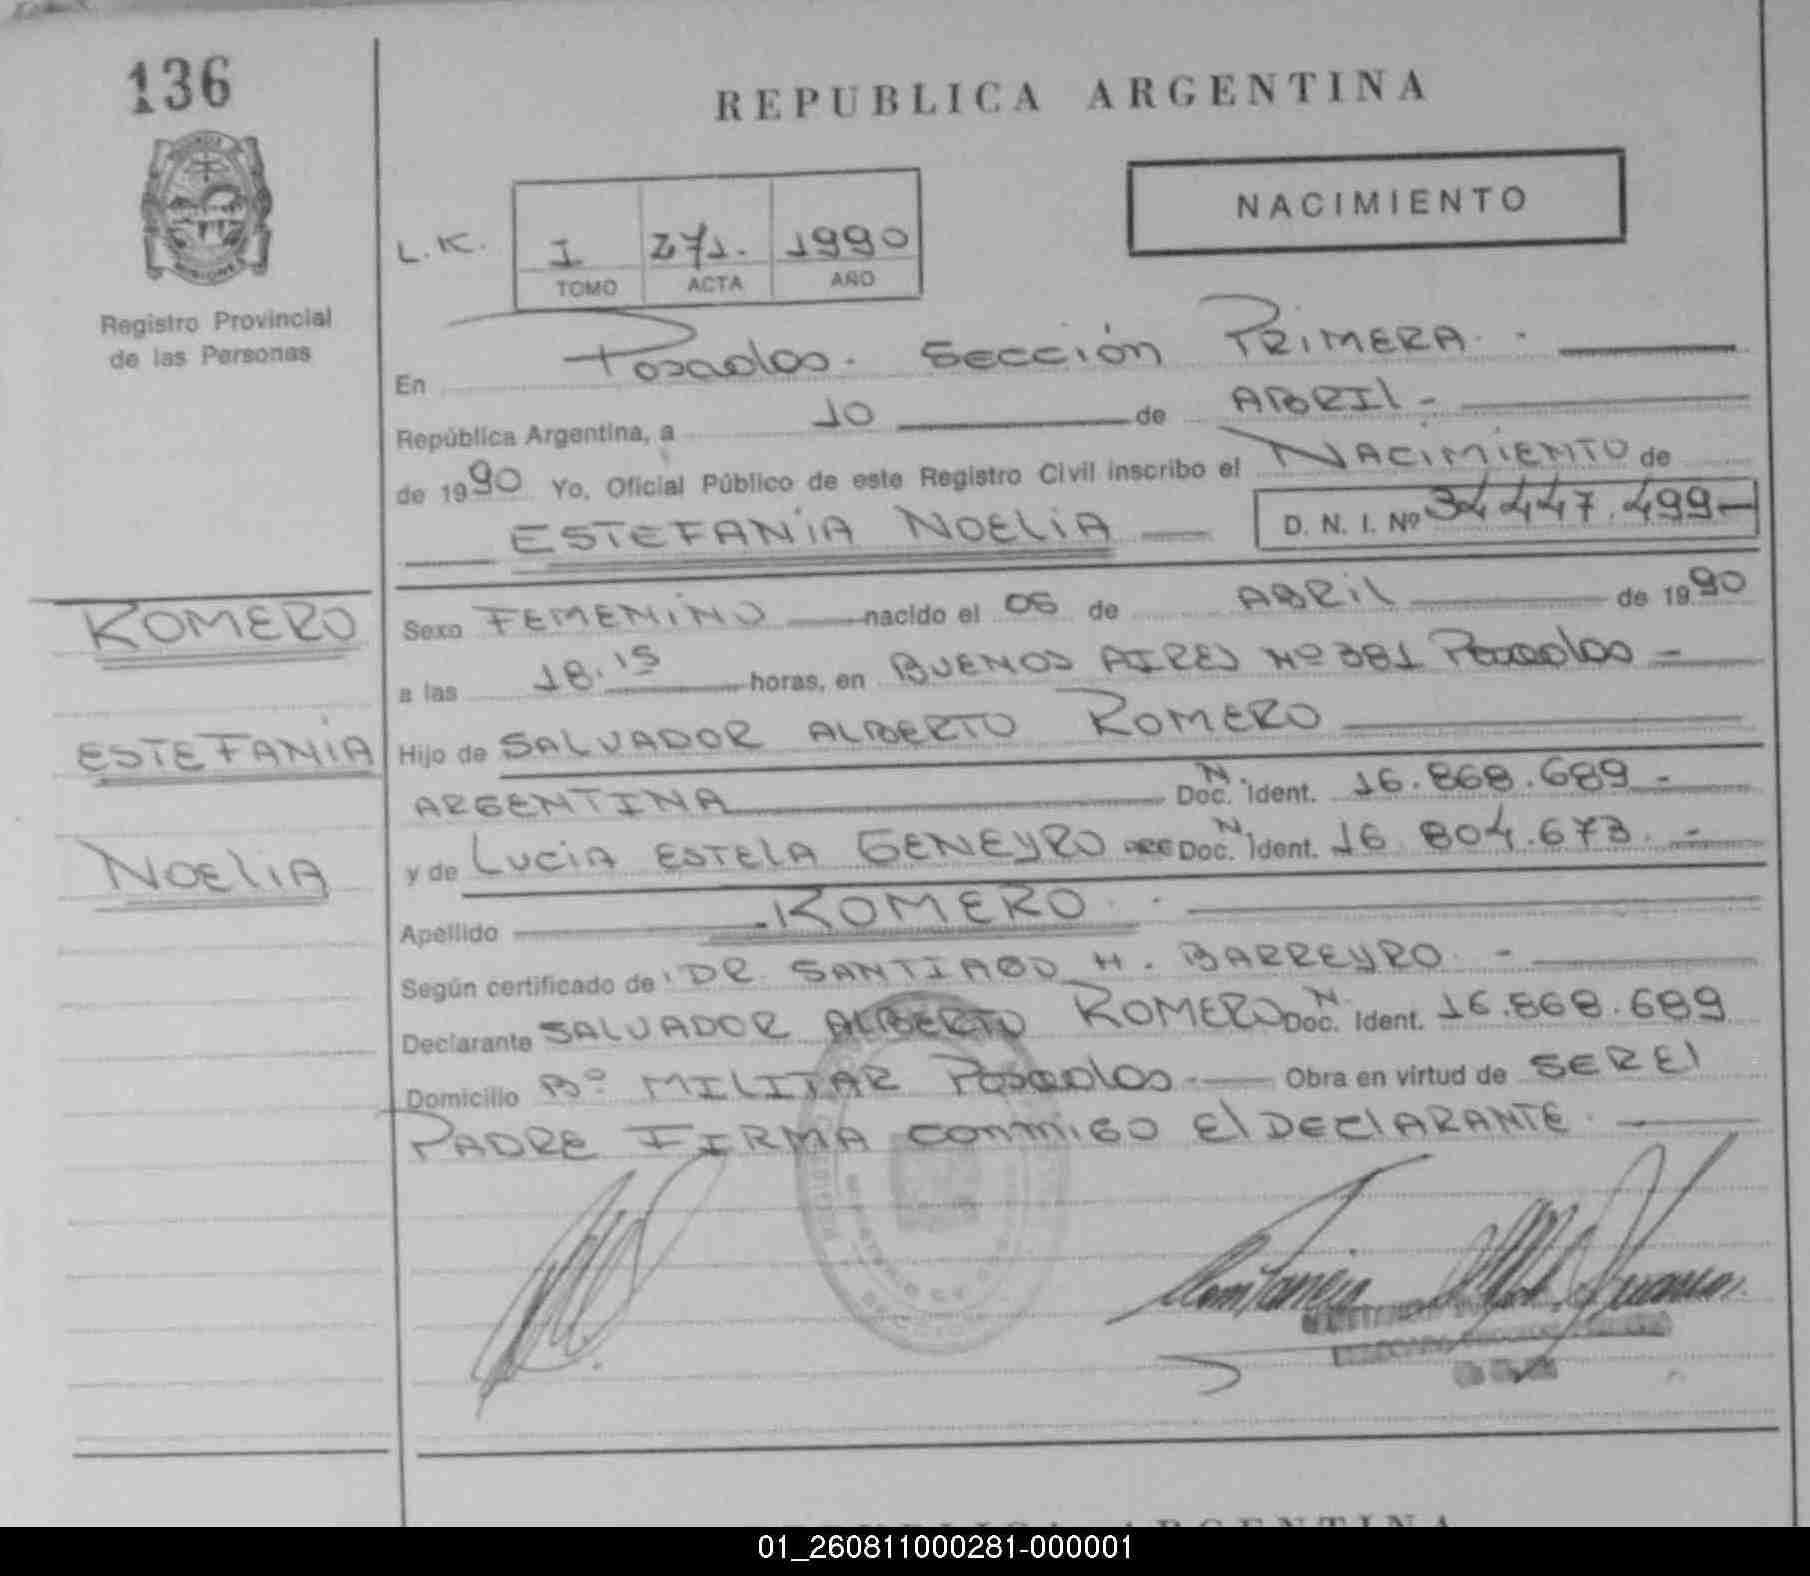 136
REPUBLICA ARGENTINA
NACIMIENTO
L.K.
I 271. 1990
TOMO ACTA AÑO
Registro Provincial
de las Personas
En Posadas. Sección PRIMERA.
República Argentina, a 10 de ABRIL -
de 1990 Yo, Oficial Público de este Registro Civil inscribo el NACIMIENTO de
ESTEFANIA NOELIA D. N. I. Nº 34.447.499-
ROMERO
ESTEFANIA
NOELIA
Sexo FEMENINO nacido el 06 de ABRIL de 1990
a las 18.15 horas, en BUENOS AIRES Nº 381 Posadas -
Hijo de SALVADOR ALBERTO ROMERO
ARGENTINA Doc. N. Ident. 16.868.689 -
y de LUCIA ESTELA GENEYRO ARG Doc. N. Ident. 16 804.673. -
Apellido ROMERO.
Según certificado de DR. SANTIAGO H. BARREYRO. -
Declarante SALVADOR ALBERTO ROMERO Doc. N. Ident. 16.868.689
Domicilio Bº MILITAR Posadas - Obra en virtud de SER El
PADRE FIRMA conmigo El DEClARANTE.
REPUBLICA ARGENTINA
01_260811000281-000001